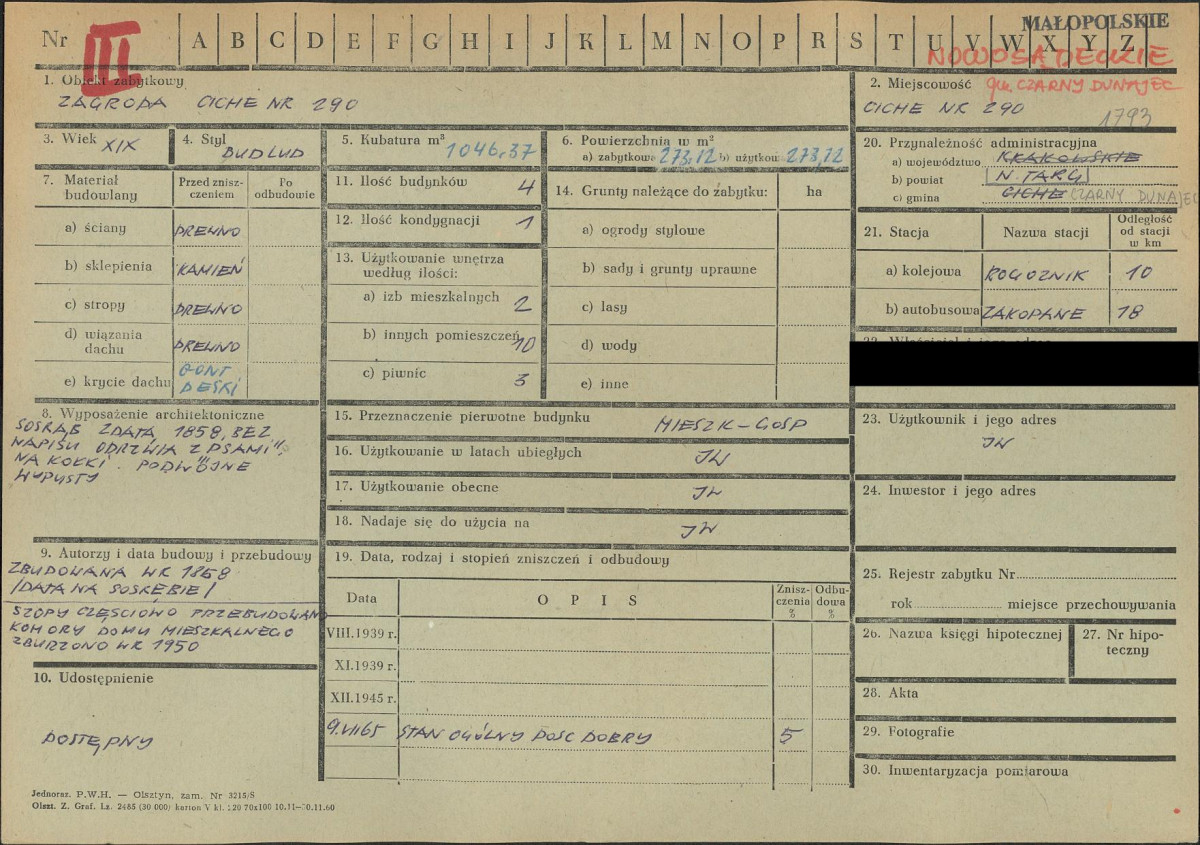 MAŁOPOLSKIE
Nr III A B C D E F G H I J K L M N O P R S T U V W X Y Z
NOWOSĄDECKIE
1. Obiekt zabytkowy
ZAGRODA CICHE NR 290
2. Miejscowość gm. CZARNY DUNAJEC
CICHE NR 290
1793
3. Wiek XIX
4. Styl BUD LUD
5. Kubatura m³ 1046,37
6. Powierzchnia w m²
a) zabytkowa 273,12 b) użytkow. 273,12
7. Materiał budowlany
Przed zniszczeniem
Po odbudowie
a) ściany DREWNO
b) sklepienia KAMIEŃ
c) stropy DREWNO
d) wiązania dachu DREWNO
e) krycie dachu GONT DESKI
8. Wyposażenie architektoniczne
SOSRĄB Z DATĄ 1858, BEZ
NAPISU ODRZWIA Z "PSAMI"
NA KOŁKI. PODWÓJNE
WYPUSTY
9. Autorzy i data budowy i przebudowy
ZBUDOWANA W R 1858
/DATA NA SOSRĘBIE/
SZOPY CZĘŚCIOWO PRZEBUDOWANO
KOMORY DOMU MIESZKALNEGO
ZBURZONO W R 1950
10. Udostępnienie
DOSTĘPNY
11. Ilość budynków 4
12. Ilość kondygnacji 1
13. Użytkowanie wnętrza
według ilości:
a) izb mieszkalnych 2
b) innych pomieszczeń 10
c) piwnic 3
14. Grunty należące do zabytku: ha
a) ogrody stylowe
b) sady i grunty uprawne
c) lasy
d) wody
e) inne
15. Przeznaczenie pierwotne budynku MIESZK-GOSP
16. Użytkowanie w latach ubiegłych JW
17. Użytkowanie obecne JW
18. Nadaje się do użycia na JW
19. Data, rodzaj i stopień zniszczeń i odbudowy
Data
OPIS
Zniszczenia %
Odbudowa %
VIII.1939 r.
XI.1939 r.
XII.1945 r.
9.VII65 STAN OGÓLNY DOSC DOBRY 5
20. Przynależność administracyjna
a) województwo KRAKOWSKIE
b) powiat N. TARG
c) gmina CICHE CZARNY DUNAJEC
21. Stacja
Nazwa stacji
Odległość od stacji w km
a) kolejowa ROGOZNIK 10
b) autobusowa ZAKOPANE 18
23. Użytkownik i jego adres
JW
24. Inwestor i jego adres
25. Rejestr zabytku Nr
rok miejsce przechowywania
26. Nazwa księgi hipotecznej
27. Nr hipoteczny
28. Akta
29. Fotografie
30. Inwentaryzacja pomiarowa
Jednoraz. P.W.H. — Olsztyn, zam. Nr 3215/S
Olszt. Z. Graf. Lz. 2485 (30 000) karton V kl. 220 70x100 10.11—30.11.60